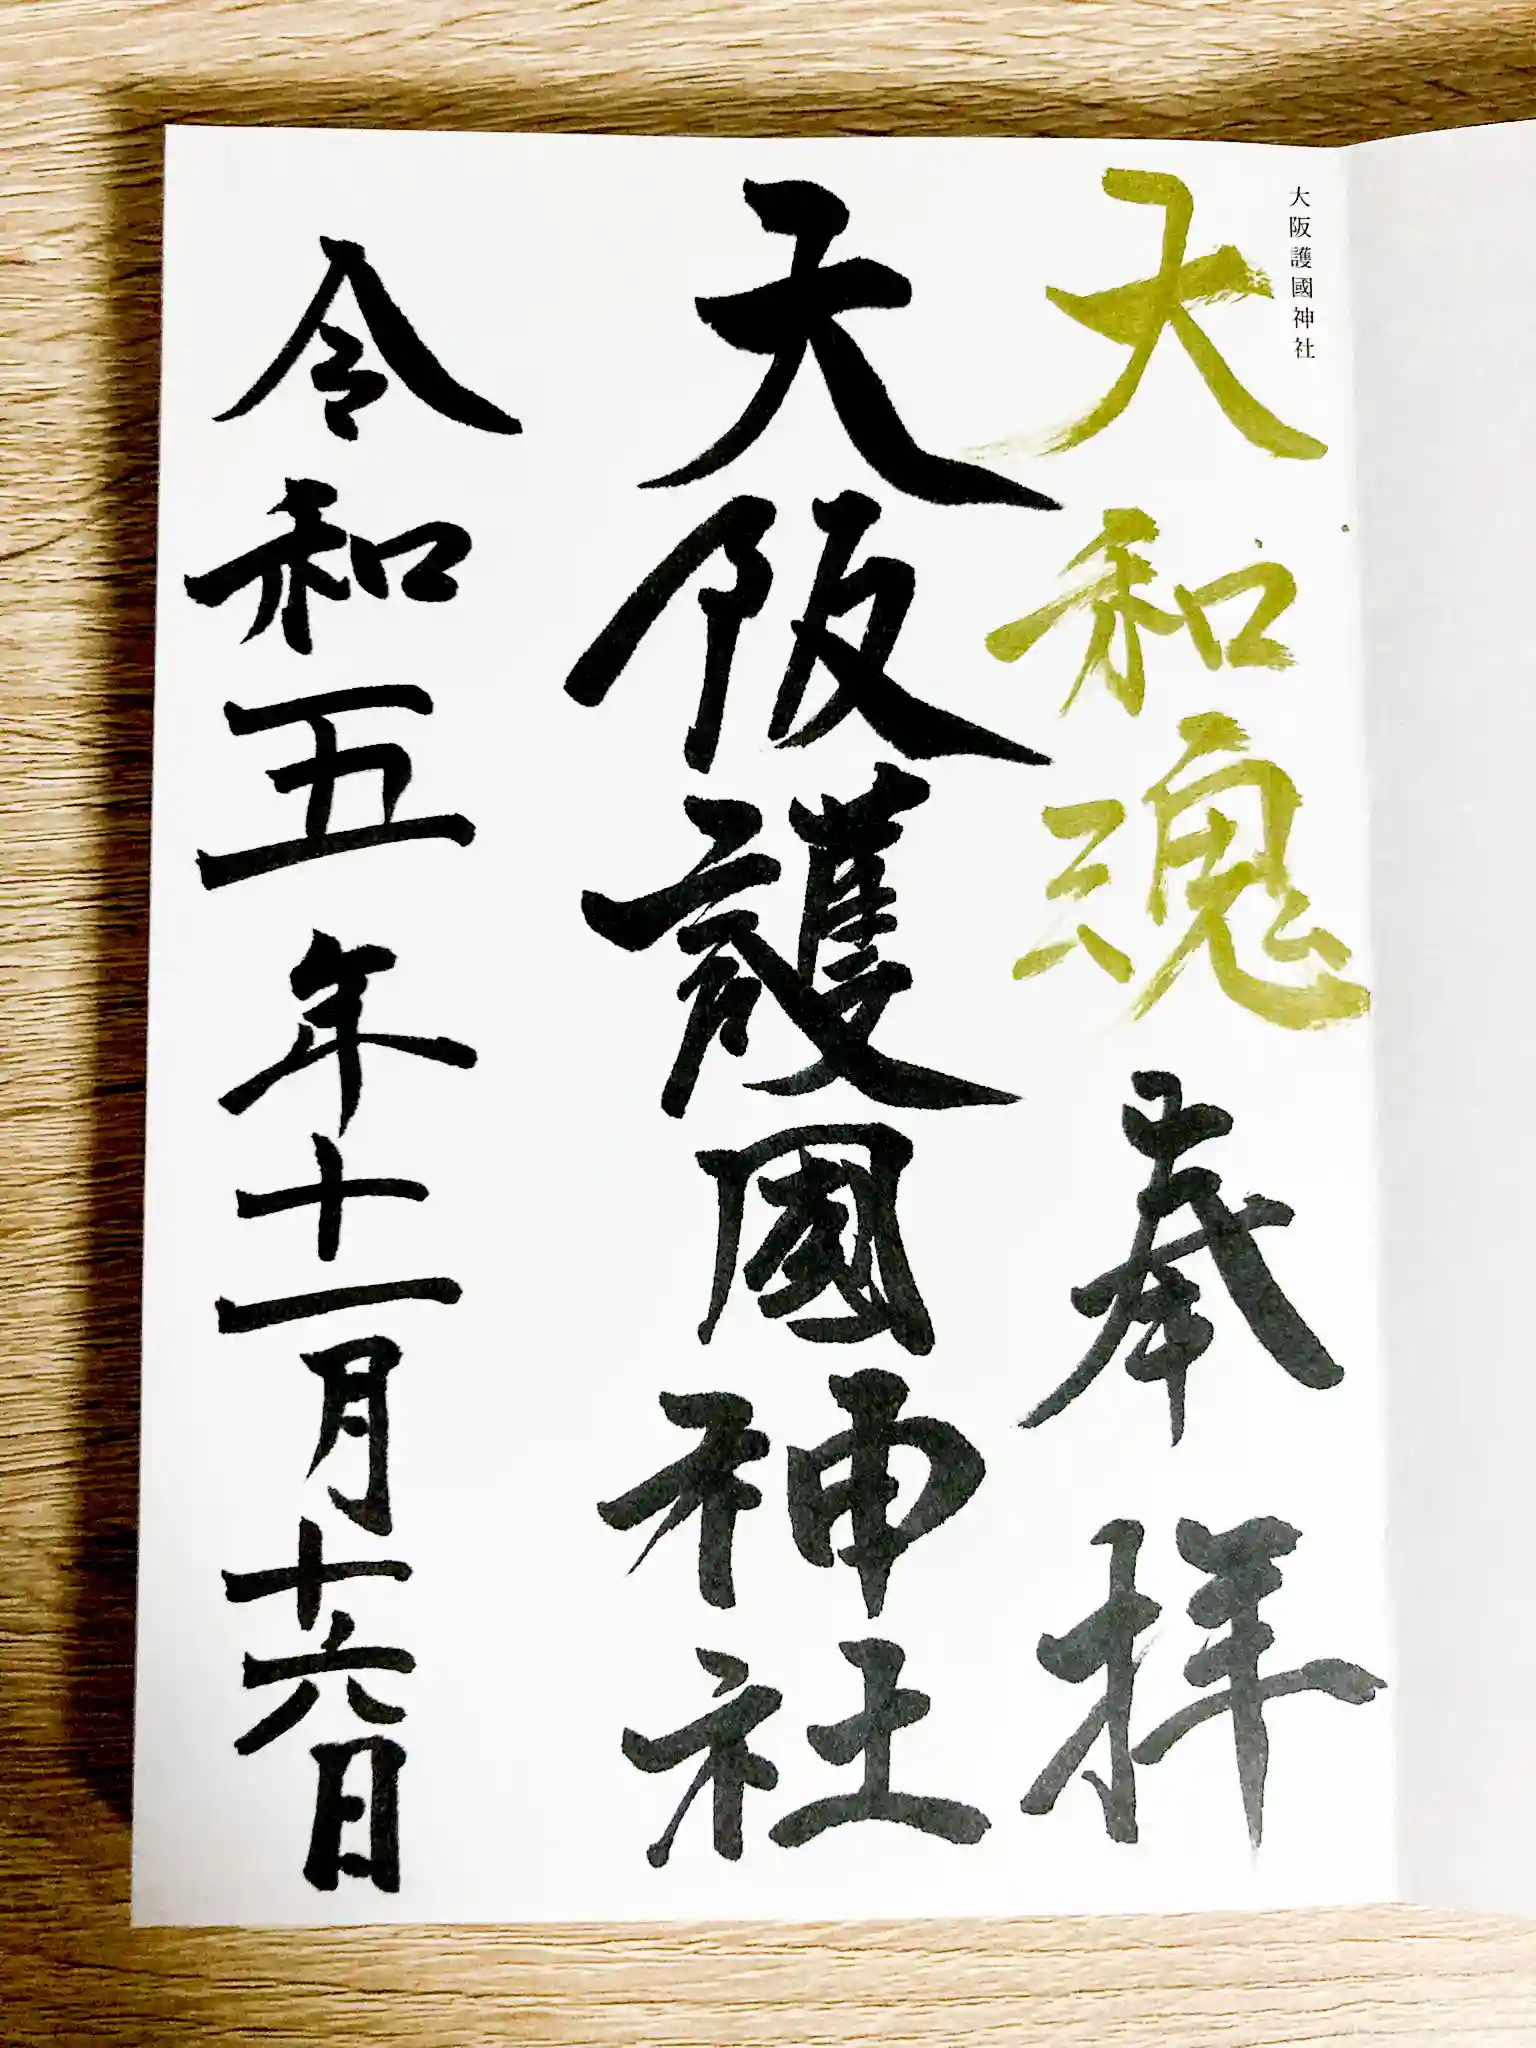 大阪護國神社
大和魂 奉拝
大阪護國神社
令和五年十一月十六日